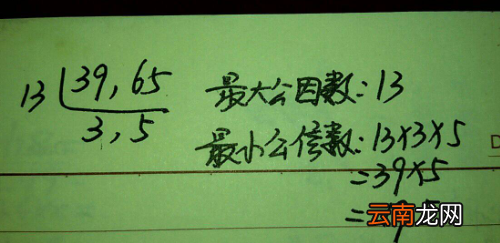 13 39, 65
3, 5
最大公因数: 13
最小公倍数: 13×3×5
=39×5
=
云南龙网
D